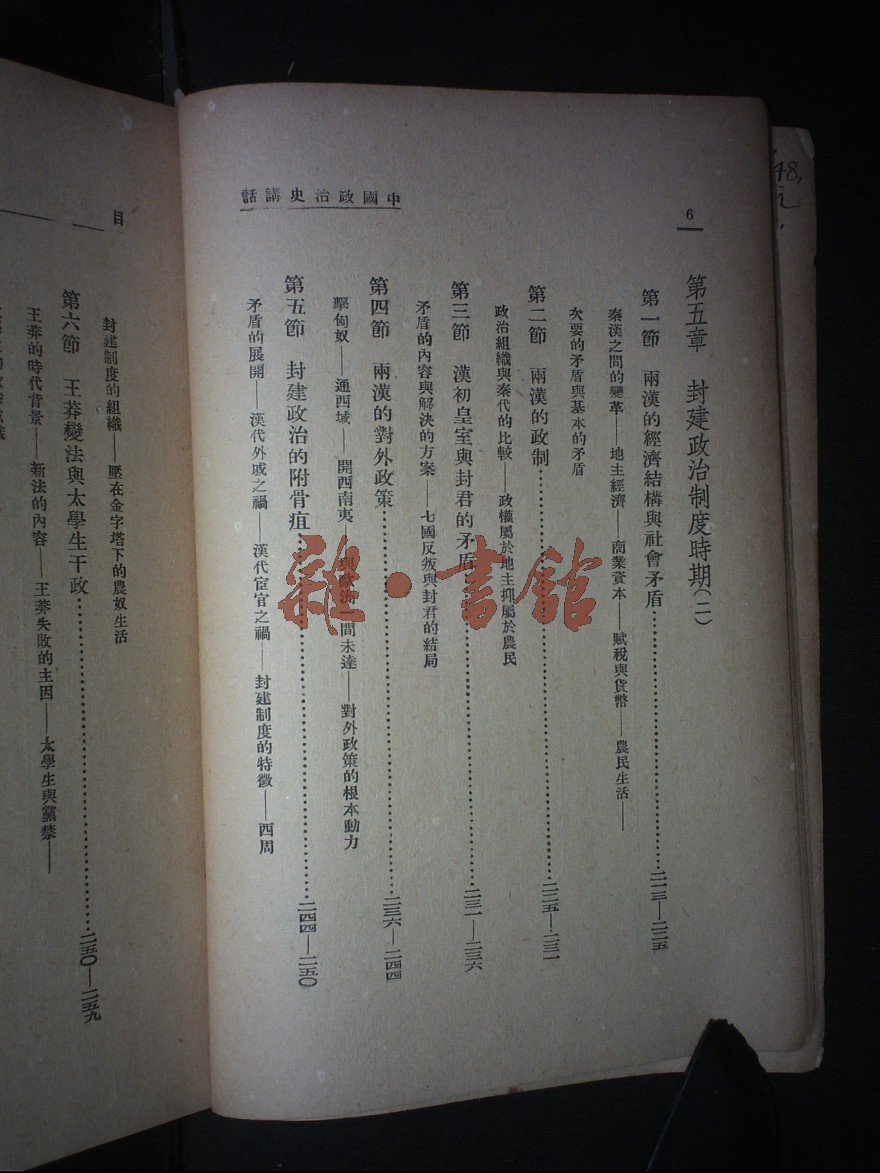 中國政治史講話
6
第五章　封建政治制度時期(二)
第一節　兩漢的經濟結構與社會矛盾……二一三—二二五
秦漢之間的變革——地主經濟——商業資本——賦稅與貨幣——農民生活——
次要的矛盾與基本的矛盾
第二節　兩漢的政制……二二五—二三一
政治組織與秦代的比較——政權屬於地主抑屬於農民
第三節　漢初皇室與封君的矛盾……二三一—二三六
矛盾的內容與解決的方案——七國反叛與封君的結局
第四節　兩漢的對外政策……二三六—二四四
擊匈奴——通西域——開西南夷——與歐洲一間未達——對外政策的根本動力
第五節　封建政治的附骨疽……二四四—二五〇
矛盾的展開——漢代外戚之禍——漢代宦官之禍——封建制度的特徵——西周
目
封建制度的組織——壓在金字塔下的農奴生活
第六節　王莽變法與太學生干政……二五〇—二五九
王莽的時代背景——新法的內容——王莽失敗的主因——太學生與黨禁——
雜·書館
48,